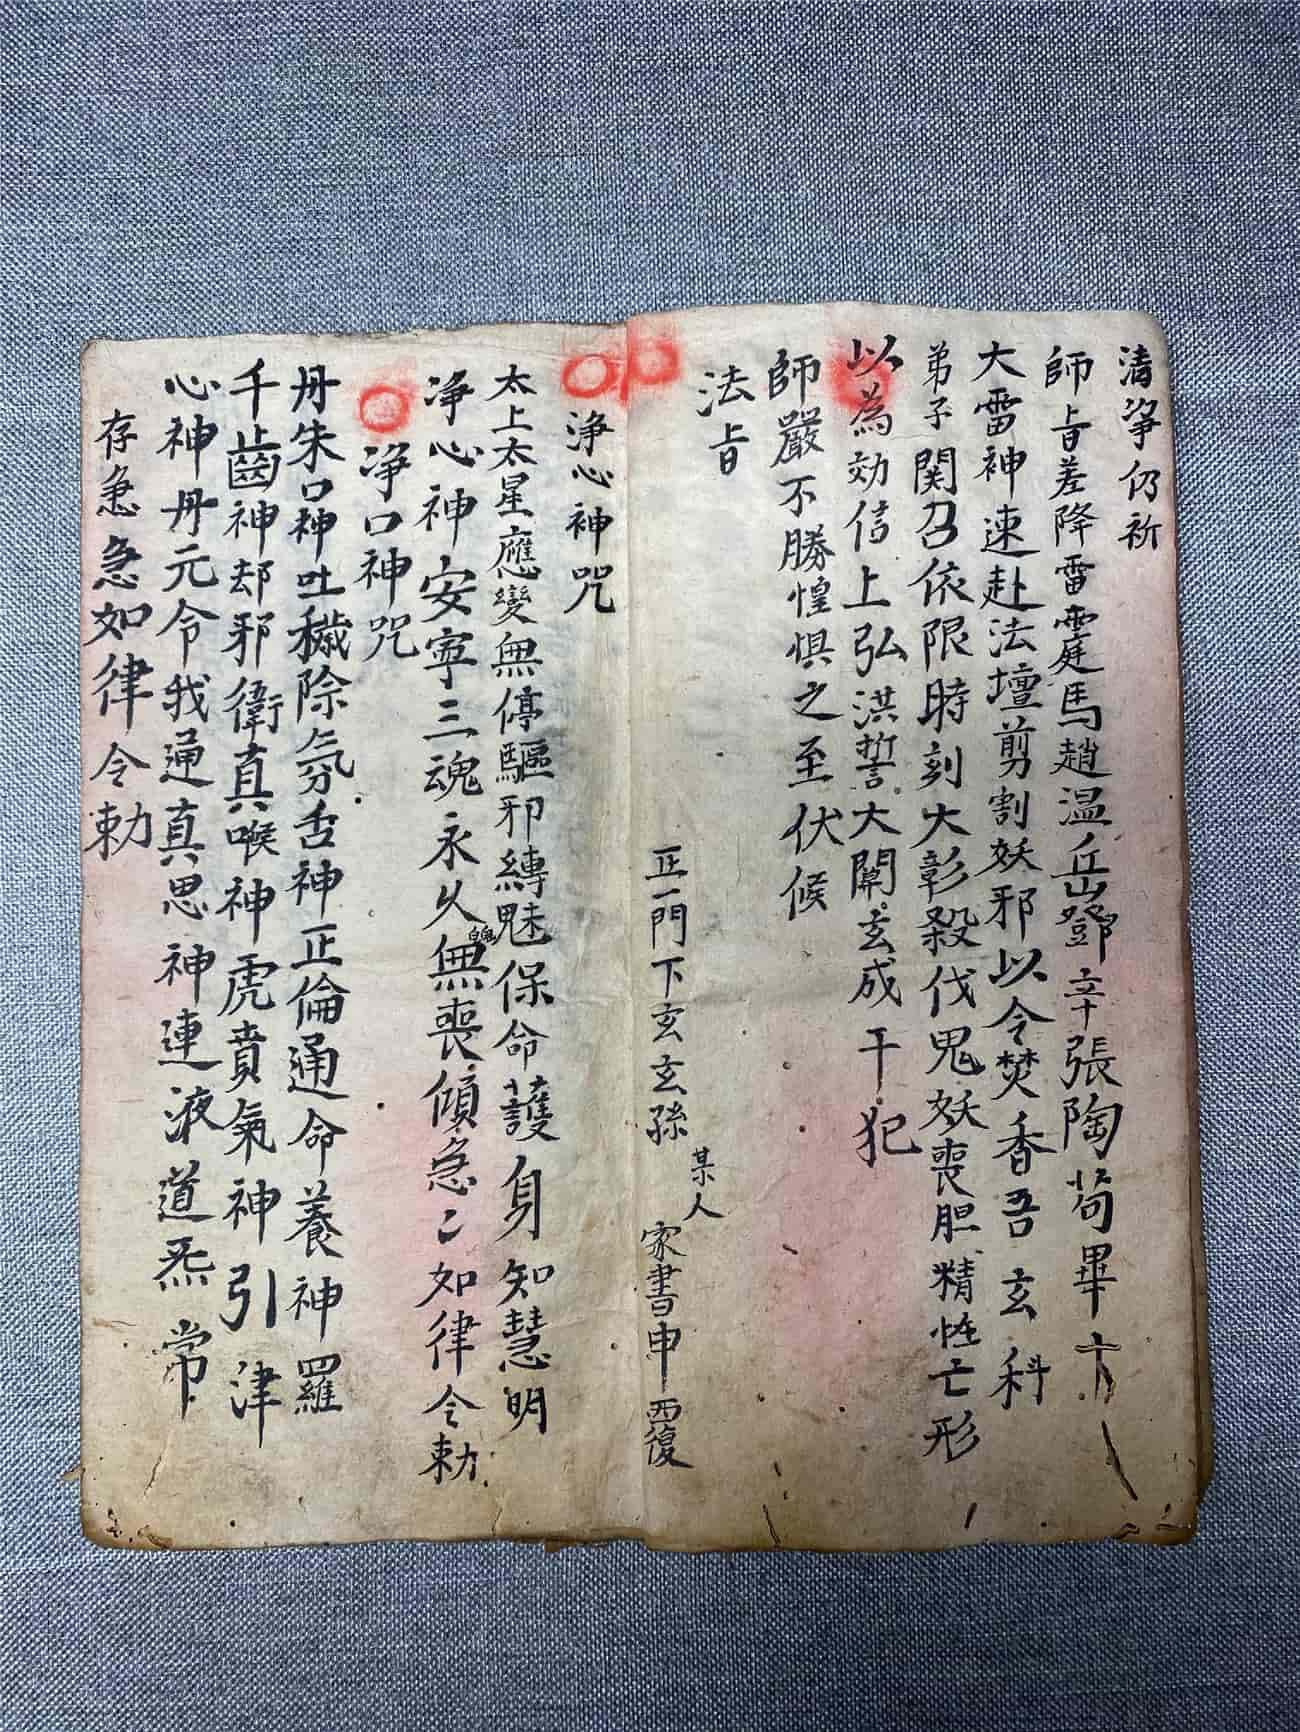 清净仍祈
師旨差降雷霆馬趙温丘鄧辛張陶苟畢六
大雷神速赴法壇剪割妖邪以令焚香吾玄科
弟子関召依限時刻大彰殺伐鬼妖喪胆精怪亡形
以為効信上弘洪誓大闡玄成干犯
師嚴不勝惶惧之至伏候
法旨
正一門下玄玄孫某人家書申西復
淨心神咒
太上太星應變無停驅邪縛魅保命護身知慧明
净心神安寧三魂永久魄無喪傾急二如律令勅
净口神咒
丹朱口神吐穢除氛舌神正倫通命養神羅
千齒神却邪衛真喉神虎賁氣神引津
心神丹元令我通真思神連液道炁常
存急急如律令勅